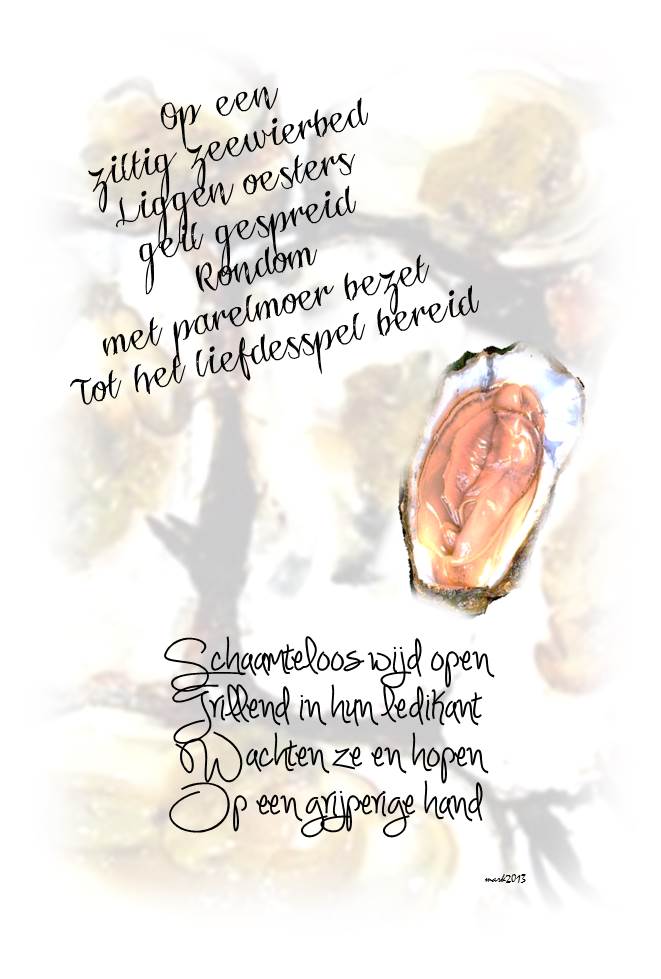 Op een
ziltig zeewierbed
Liggen oesters
geil gespreid
Rondom
met parelmoer bezet
Tot het liefdesspel bereid
Schaamteloos wijd open
Trillend in hun ledikant
Wachten ze en hopen
Op een grijperige hand
mark2013